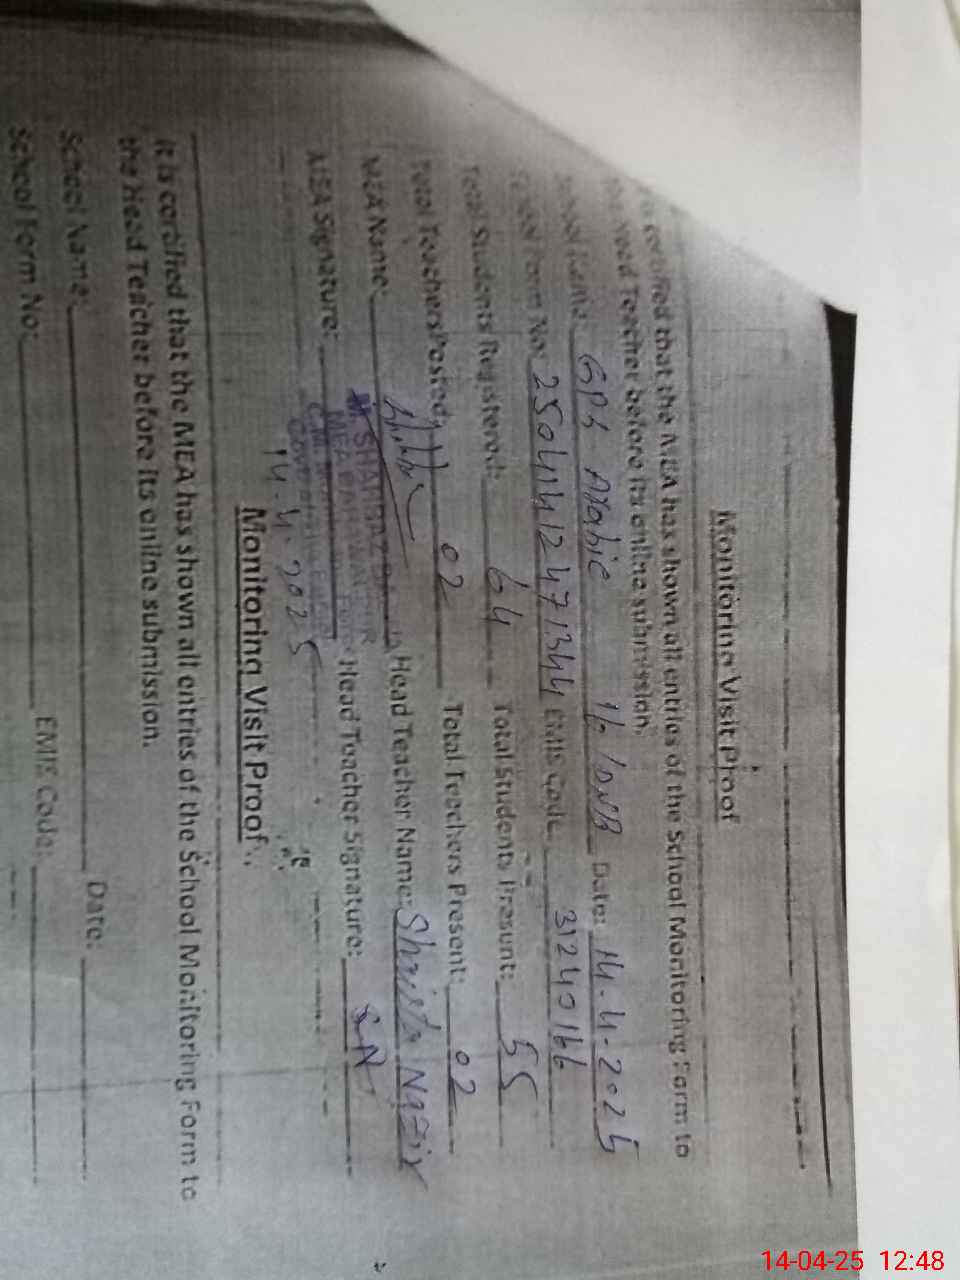 Monitoring Visit Proof
certified that the MEA has shown all entries of the School Monitoring Form to
the Head Teacher before its online submission.
School Name: GPS Arabic 1/2 /DNB Date: 14-4-2025
School Form No: EMIS Code: 31240166
Total Students Registered: 64 Total Students Present: 55
Total Teachers Posted: 02 Total Teachers Present: 02
MEA Name: Head Teacher Name: Nazir
MEA Signature: Head Teacher Signature: SN
14.4.2025
Monitoring Visit Proof
It is certified that the MEA has shown all entries of the School Monitoring Form to
the Head Teacher before its online submission.
School Name: Date:
School Form No: EMIS Code:
14-04-25 12:48